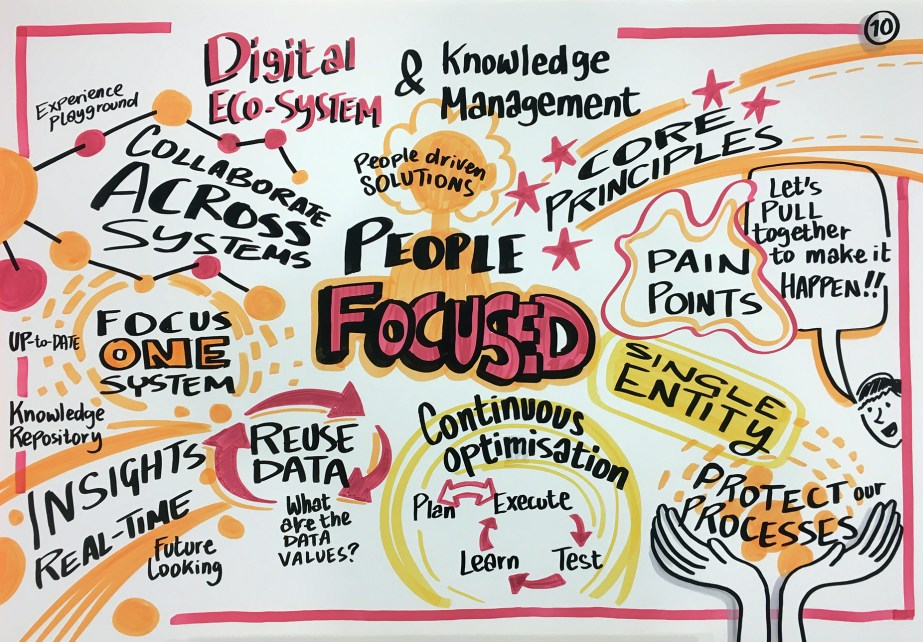 10
Digital
ECO-SYSTEM
&
Knowledge
Management
Experience
Playground
COLLABORATE
ACROSS
SYSTEMS
People driven
SOLUTIONS
CORE
PRINCIPLES
PEOPLE
FOCUSED
PAIN
POINTS
Let's
PULL
together
to make it
HAPPEN!!
UP-to-DATE
FOCUS
ONE
SYSTEM
SINGLE
ENTITY
Knowledge
Repository
INSIGHTS
REAL-TIME
Future
Looking
REUSE
DATA
What
are the
DATA
VALUES?
Continuous
optimisation
Plan
Execute
Learn
Test
PROTECT our
PROCESSES